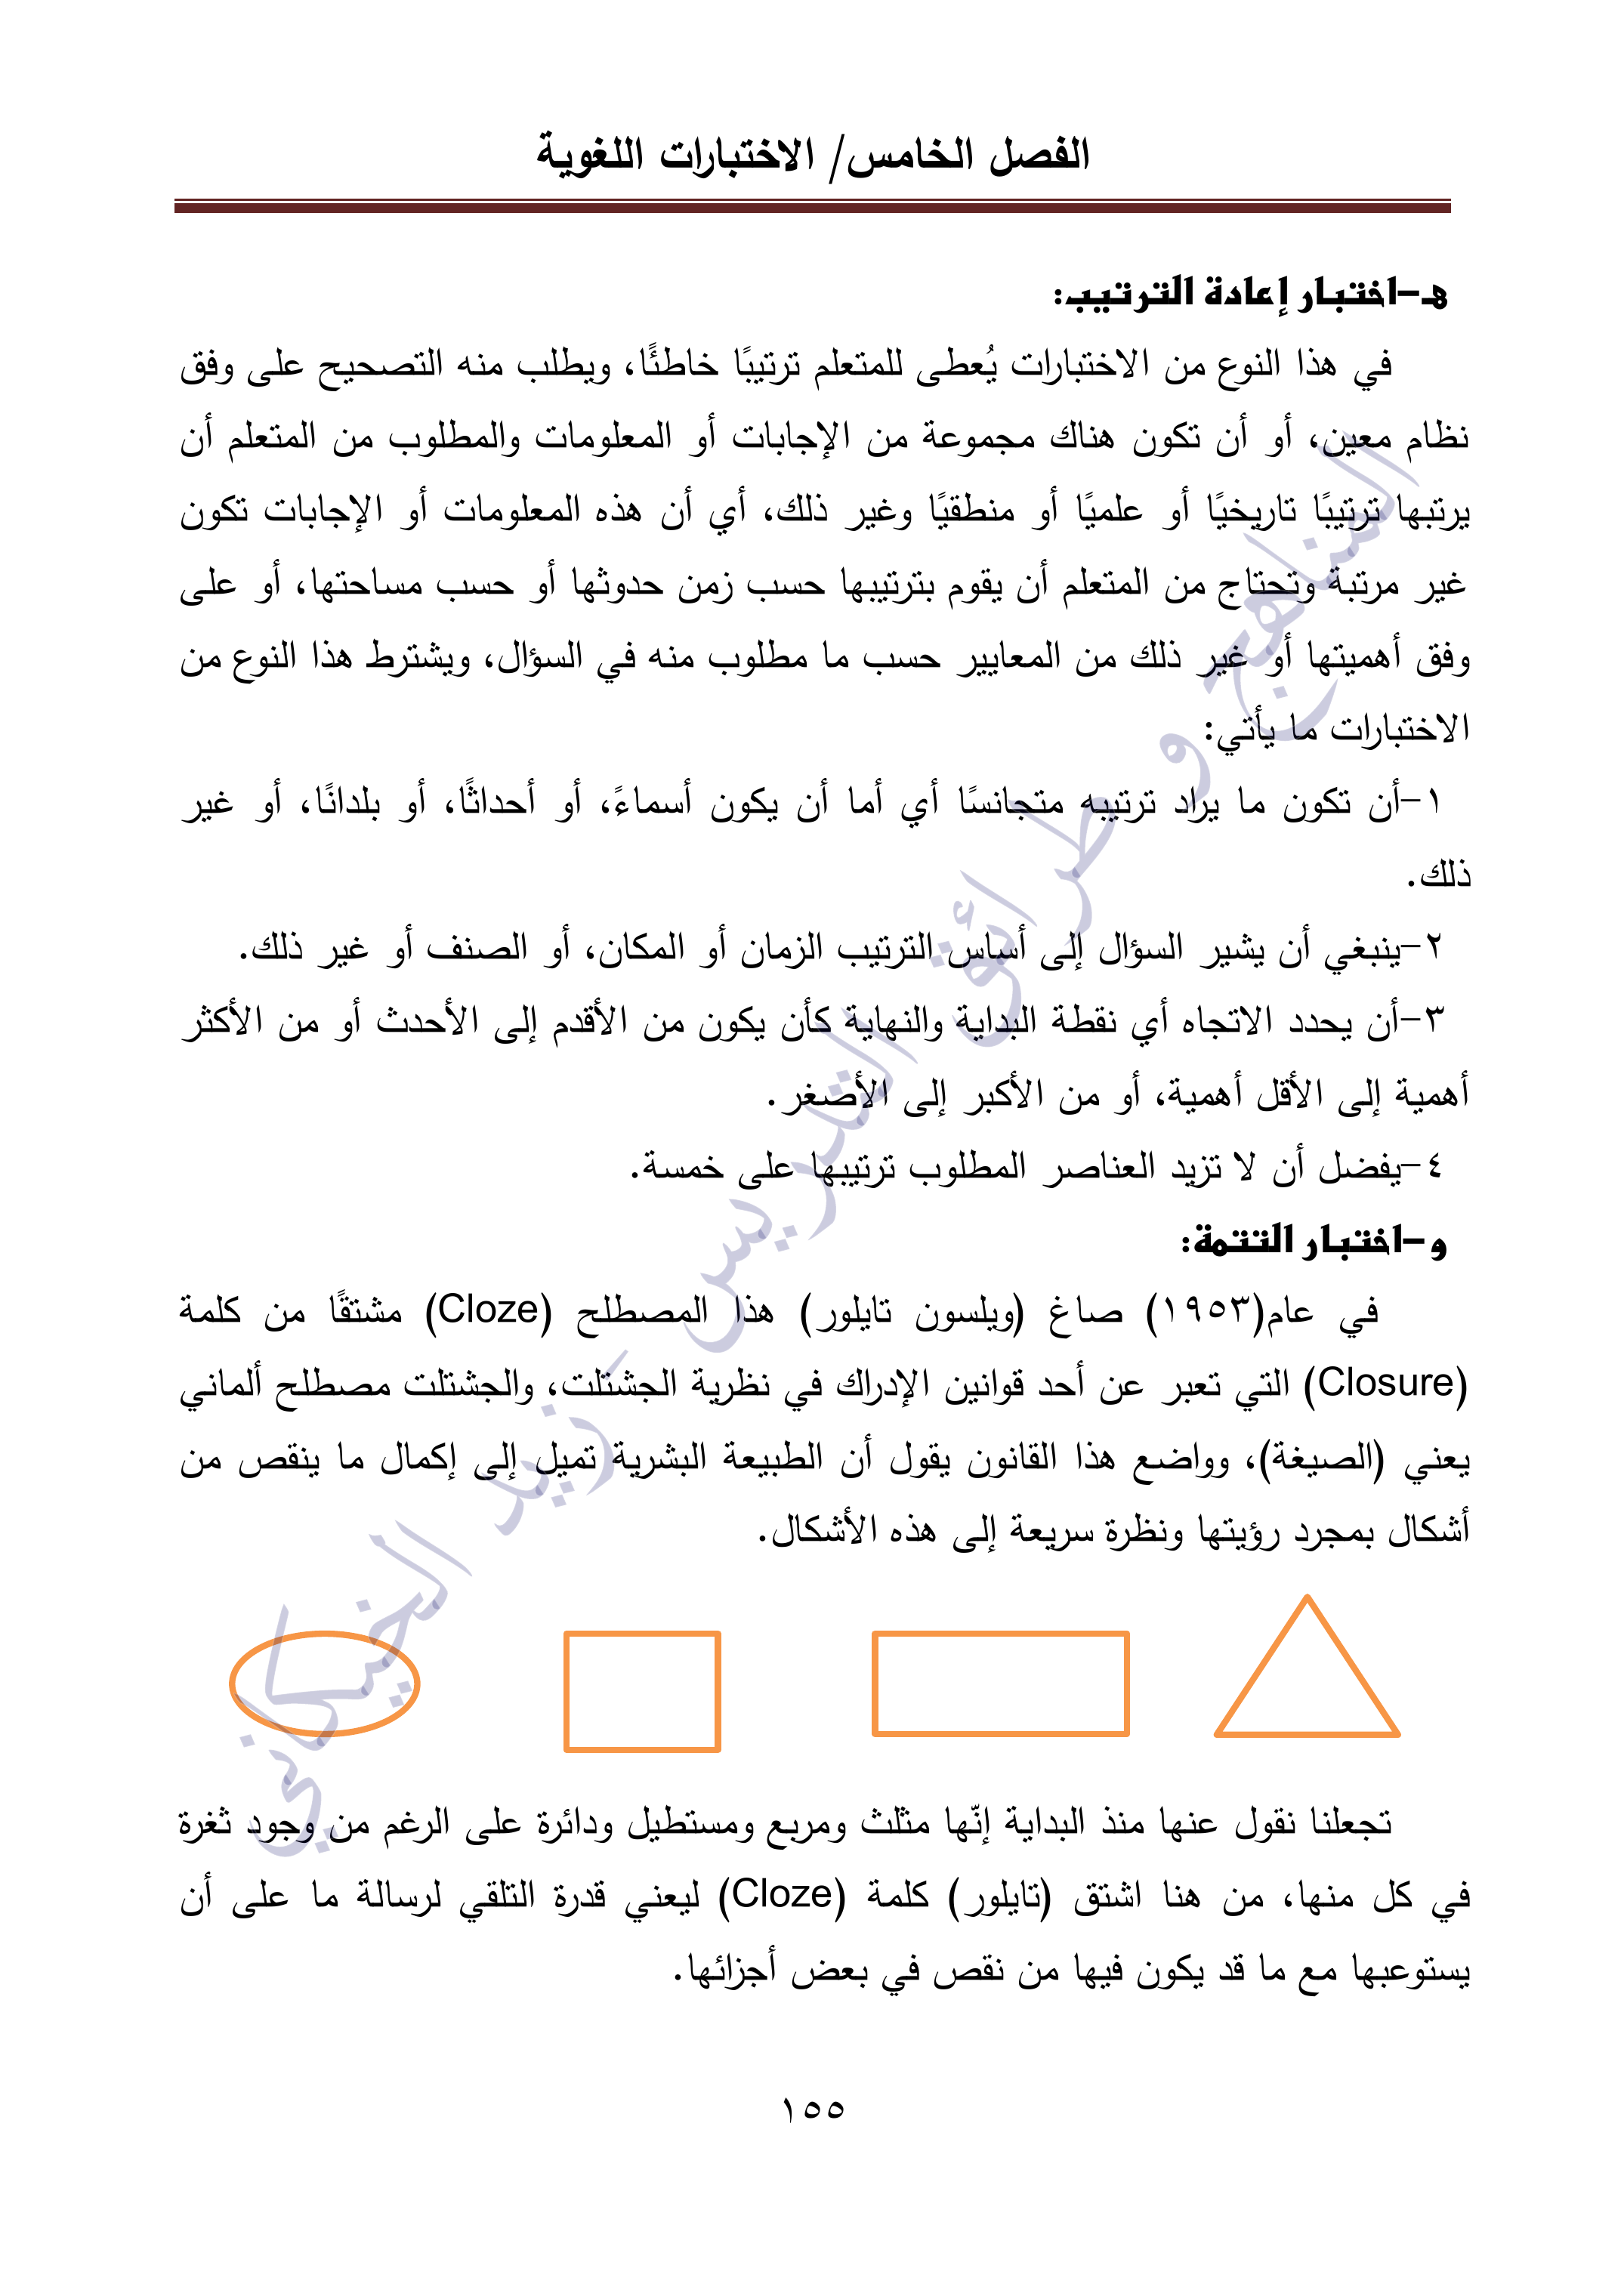 الفصل الخامس/ الاختبارات اللغوية
هـ-اختبار إعادة الترتيب:
في هذا النوع من الاختبارات يُعطى للمتعلم ترتيبًا خاطئًا، ويطلب منه التصحيح على وفق
نظام معين، أو أن تكون هناك مجموعة من الإجابات أو المعلومات والمطلوب من المتعلم أن
يرتبها ترتيبًا تاريخيًا أو علميًا أو منطقيًا وغير ذلك، أي أن هذه المعلومات أو الإجابات تكون
غير مرتبة وتحتاج من المتعلم أن يقوم بترتيبها حسب زمن حدوثها أو حسب مساحتها، أو على
وفق أهميتها أو غير ذلك من المعايير حسب ما مطلوب منه في السؤال، ويشترط هذا النوع من
الاختبارات ما يأتي:
١-أن تكون ما يراد ترتيبه متجانسًا أي أما أن يكون أسماءً، أو أحداثًا، أو بلدانًا، أو غير
ذلك.
٢-ينبغي أن يشير السؤال إلى أساس الترتيب الزمان أو المكان، أو الصنف أو غير ذلك.
٣-أن يحدد الاتجاه أي نقطة البداية والنهاية كأن يكون من الأقدم إلى الأحدث أو من الأكثر
أهمية إلى الأقل أهمية، أو من الأكبر إلى الأصغر.
٤-يفضل أن لا تزيد العناصر المطلوب ترتيبها على خمسة.
و-اختبار التتمة:
في عام(١٩٥٣) صاغ (ويلسون تايلور) هذا المصطلح (Cloze) مشتقًا من كلمة
(Closure) التي تعبر عن أحد قوانين الإدراك في نظرية الجشتلت، والجشتلت مصطلح ألماني
يعني (الصيغة)، وواضع هذا القانون يقول أن الطبيعة البشرية تميل إلى إكمال ما ينقص من
أشكال بمجرد رؤيتها ونظرة سريعة إلى هذه الأشكال.
تجعلنا نقول عنها منذ البداية إنّها مثلث ومربع ومستطيل ودائرة على الرغم من وجود ثغرة
في كل منها، من هنا اشتق (تايلور) كلمة (Cloze) ليعني قدرة التلقي لرسالة ما على أن
يستوعبها مع ما قد يكون فيها من نقص في بعض أجزائها.
١٥٥
المناهج و طرائق التدريس - زيد الخيكاني